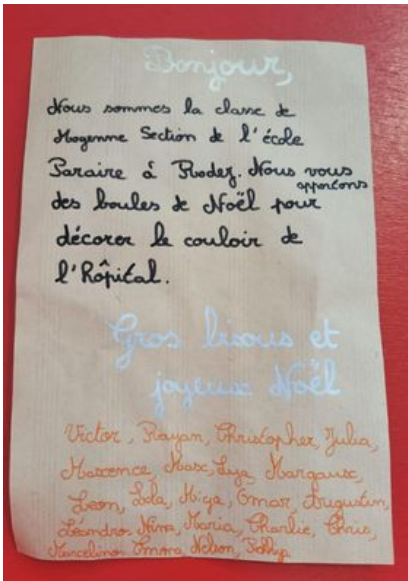 Bonjour,
Nous sommes la classe de
Moyenne Section de l'école
Paraire à Rodez. Nous vous
apportons
des boules de Noël pour
décorer le couloir de
l'hôpital.
Gros bisous et
joyeux Noël
Victor, Rayan, Christopher, Julia,
Maxence, Max, Luya, Margaux,
Leon, Lola, Miya, Omar, Augustin,
Léandro, Nina, Maria, Charlie, Chris,
Marcelino, Nelson,